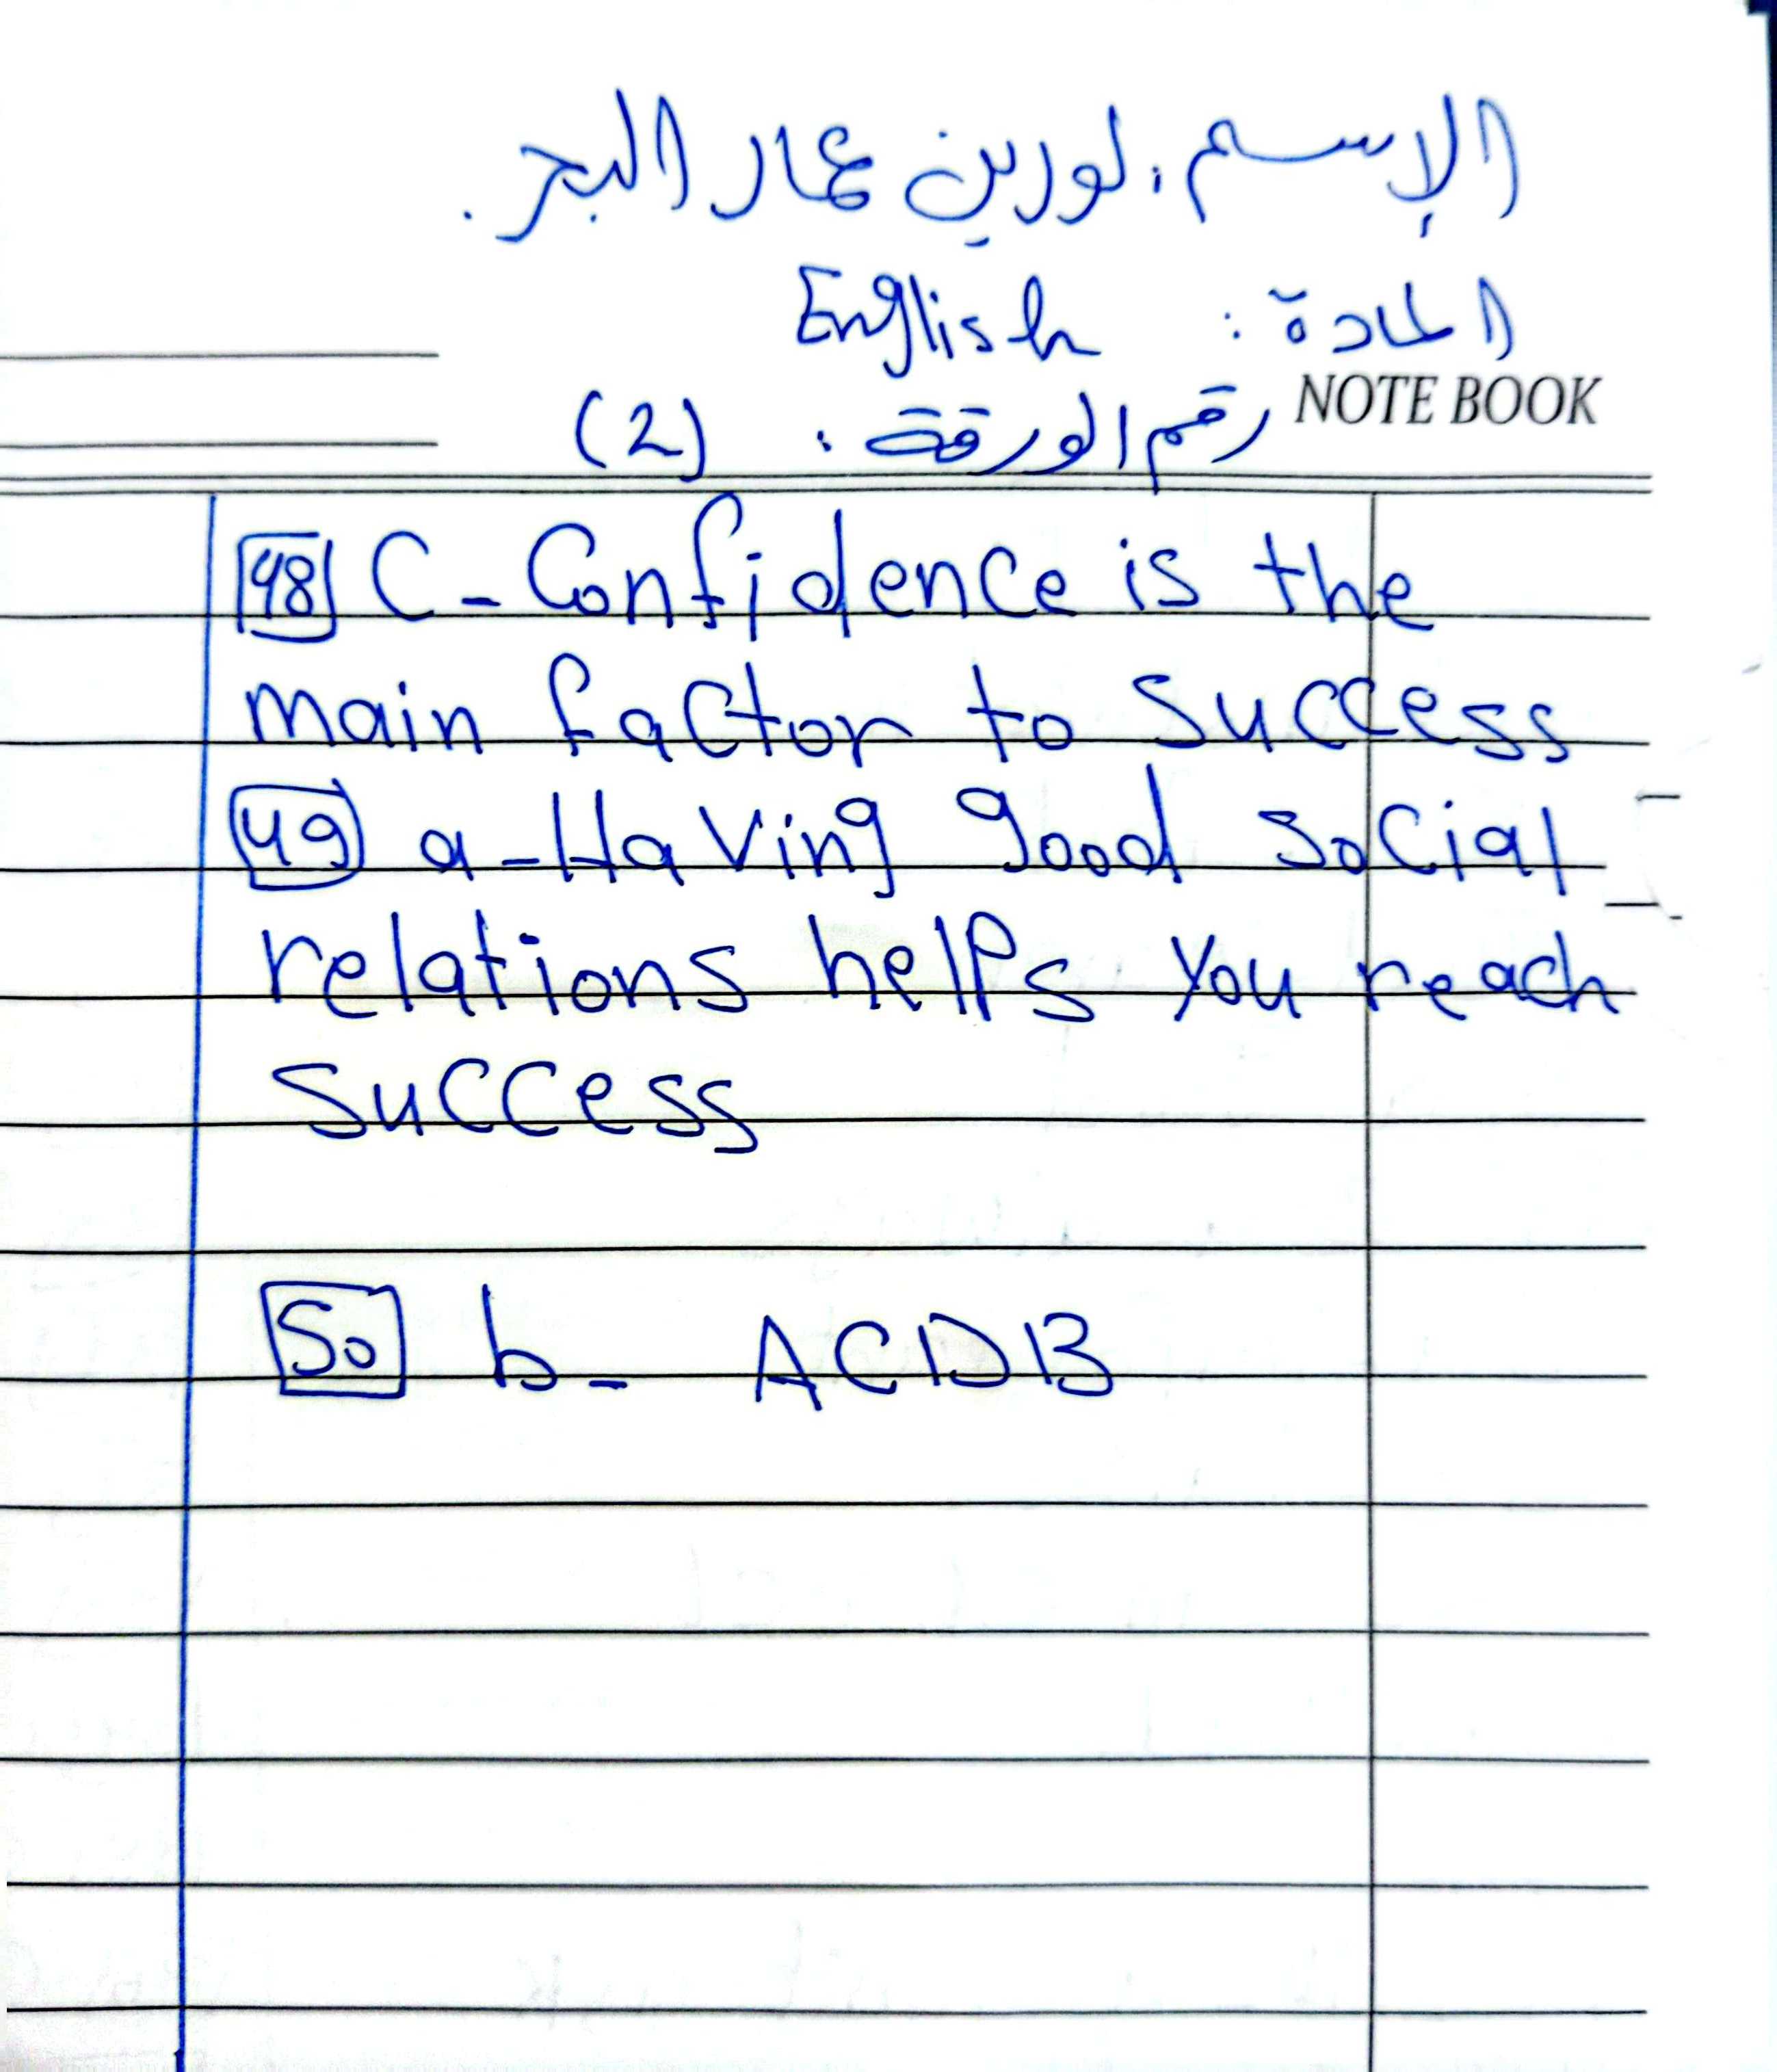 الإسم: لورين عمار البحر.
المادة: English
NOTE BOOK
رقم الورقة: (2)
48 C - Confidence is the
main factor to success
49 a - Having good social
relations helps you reach
success
50 b - ACDB